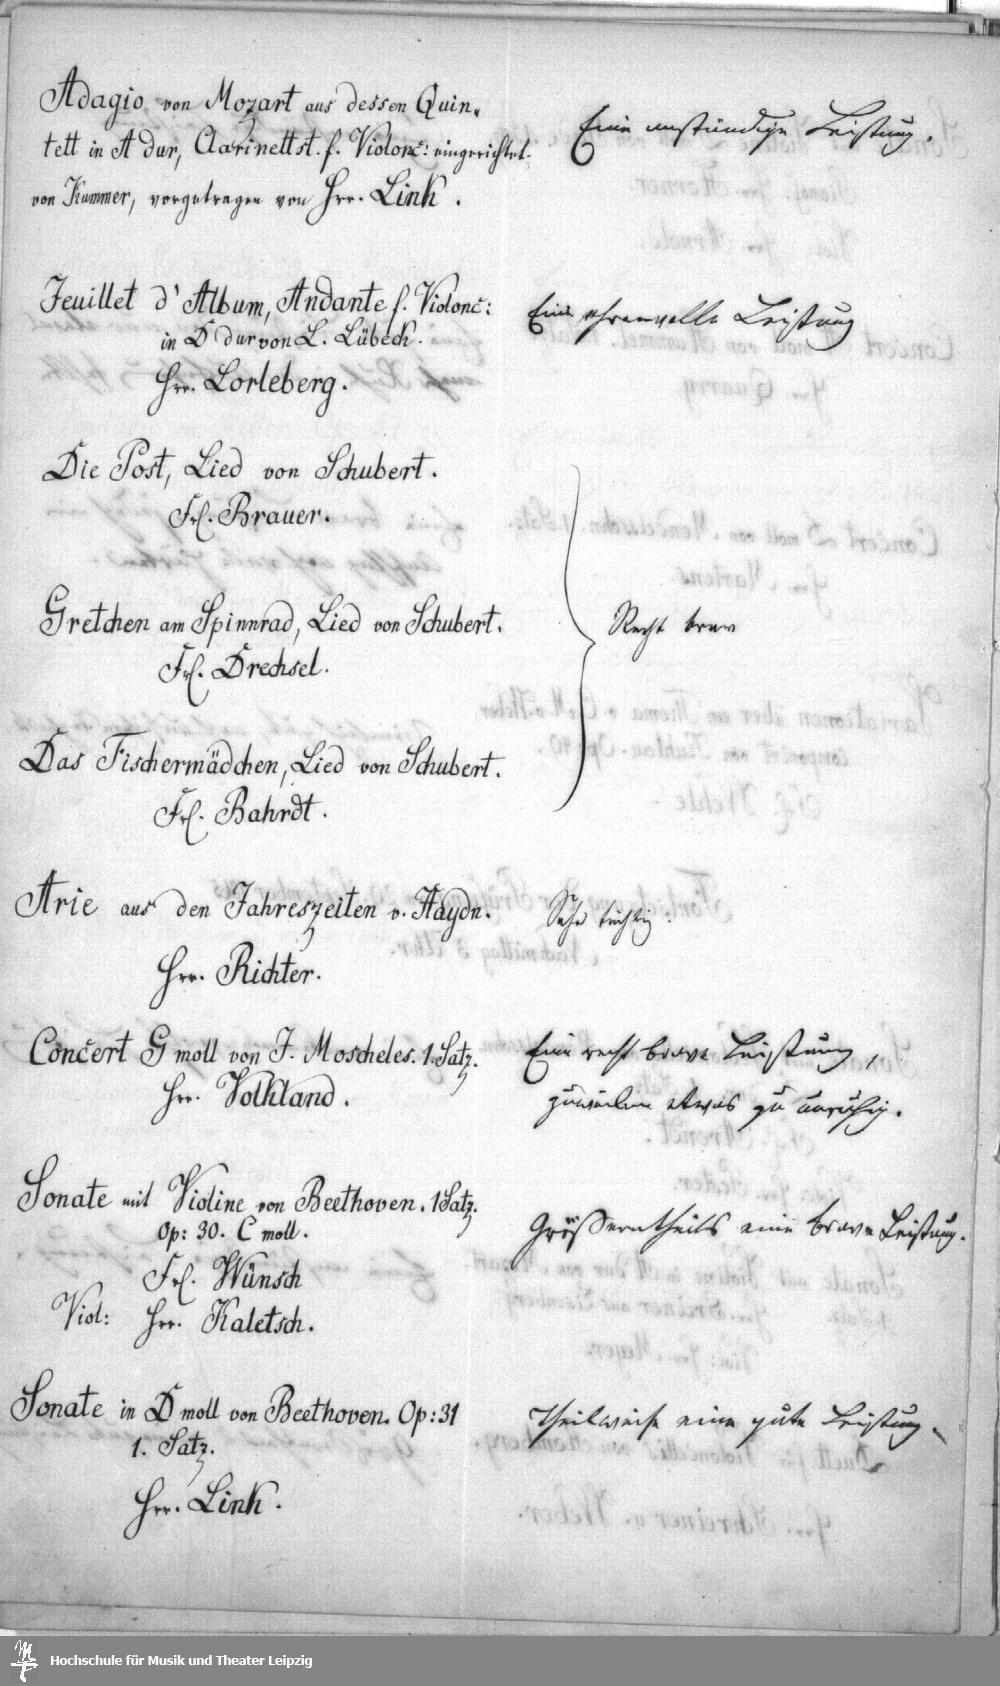 Adagio von Mozart aus dessen Quin-
tett in A dur, Clarinettst. f. Violonc: eingerichtet
von Kummer, vorgetragen von Hrr. Link.
Eine anständige Leistung.
Feuillet d'Album, Andante f. Violonc:
in D dur von L. Lübeck.
Hrr. Lorleberg.
Eine ehrenvolle Leistung
Die Post, Lied von Schubert.
Frl. Brauer.
Gretchen am Spinnrad, Lied von Schubert.
Frl. Drechsel.
Das Fischermädchen, Lied von Schubert.
Frl. Bahrdt.
Recht brav
Arie aus den Jahreszeiten v. Haydn.
Hrr. Richter.
Sehr tüchtig.
Concert G moll von J. Moscheles. 1. Satz.
Hrr. Volkland.
Eine recht brave Leistung,
zuweilen etwas zu unruhig.
Sonate mit Violine von Beethoven. 1 Satz.
Op: 30. C moll.
Frl. Wünsch
Viol: Hrr. Kaletsch.
Größerntheils eine brave Leistung.
Sonate in D moll von Beethoven. Op: 31
1. Satz.
Hrr. Link.
Theilweise eine gute Leistung.
Hochschule für Musik und Theater Leipzig